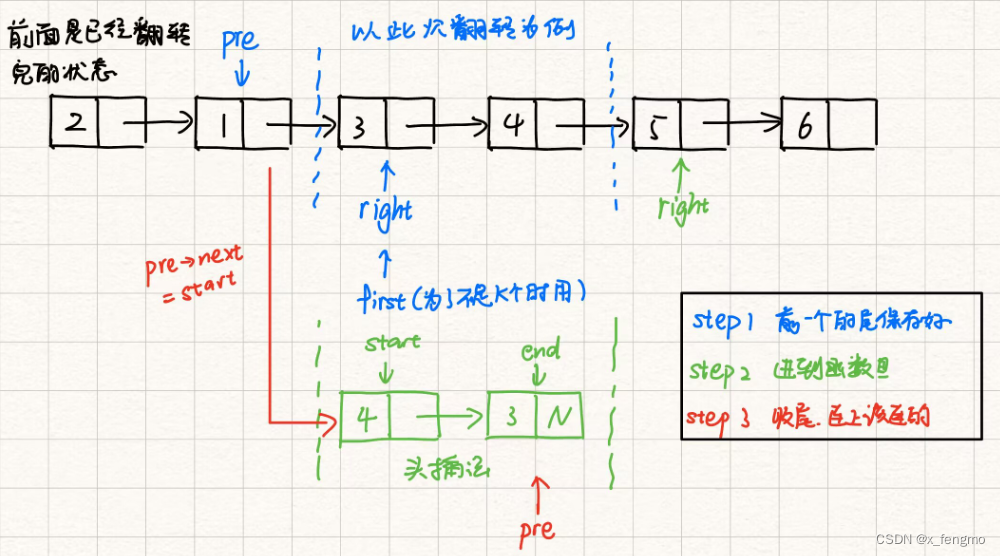 前面是已经翻转
完的状态
以此次翻转为例
pre
2 1 3 4 5 6
right
right
pre→next
= start
first(为了不足K个时用)
start
end
4 3 N
头插法
pre
step 1 前一个的尾保存好
step 2 进到函数里
step 3 收尾.连上该连的
CSDN @x_fengmo